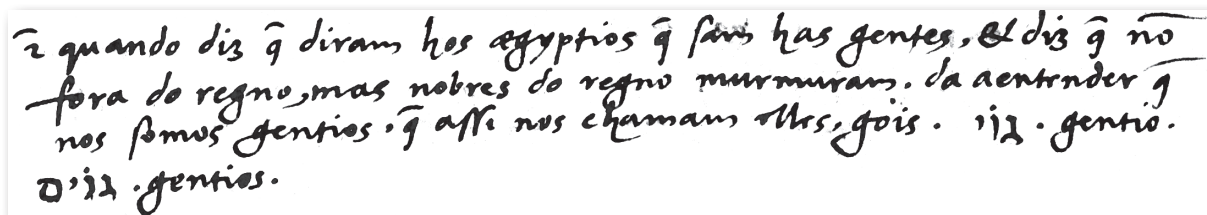 ⁊ quando diz q̃ diram hos ægyptios q̃ sam has gentes, & diz q̃ nõ
fora do regno, mas nobres do regno murmuram. da aentender q̃
nos somos gentios, q̃ assi nos chamam elles, gois. גוי. gentio.
גוים. gentios.